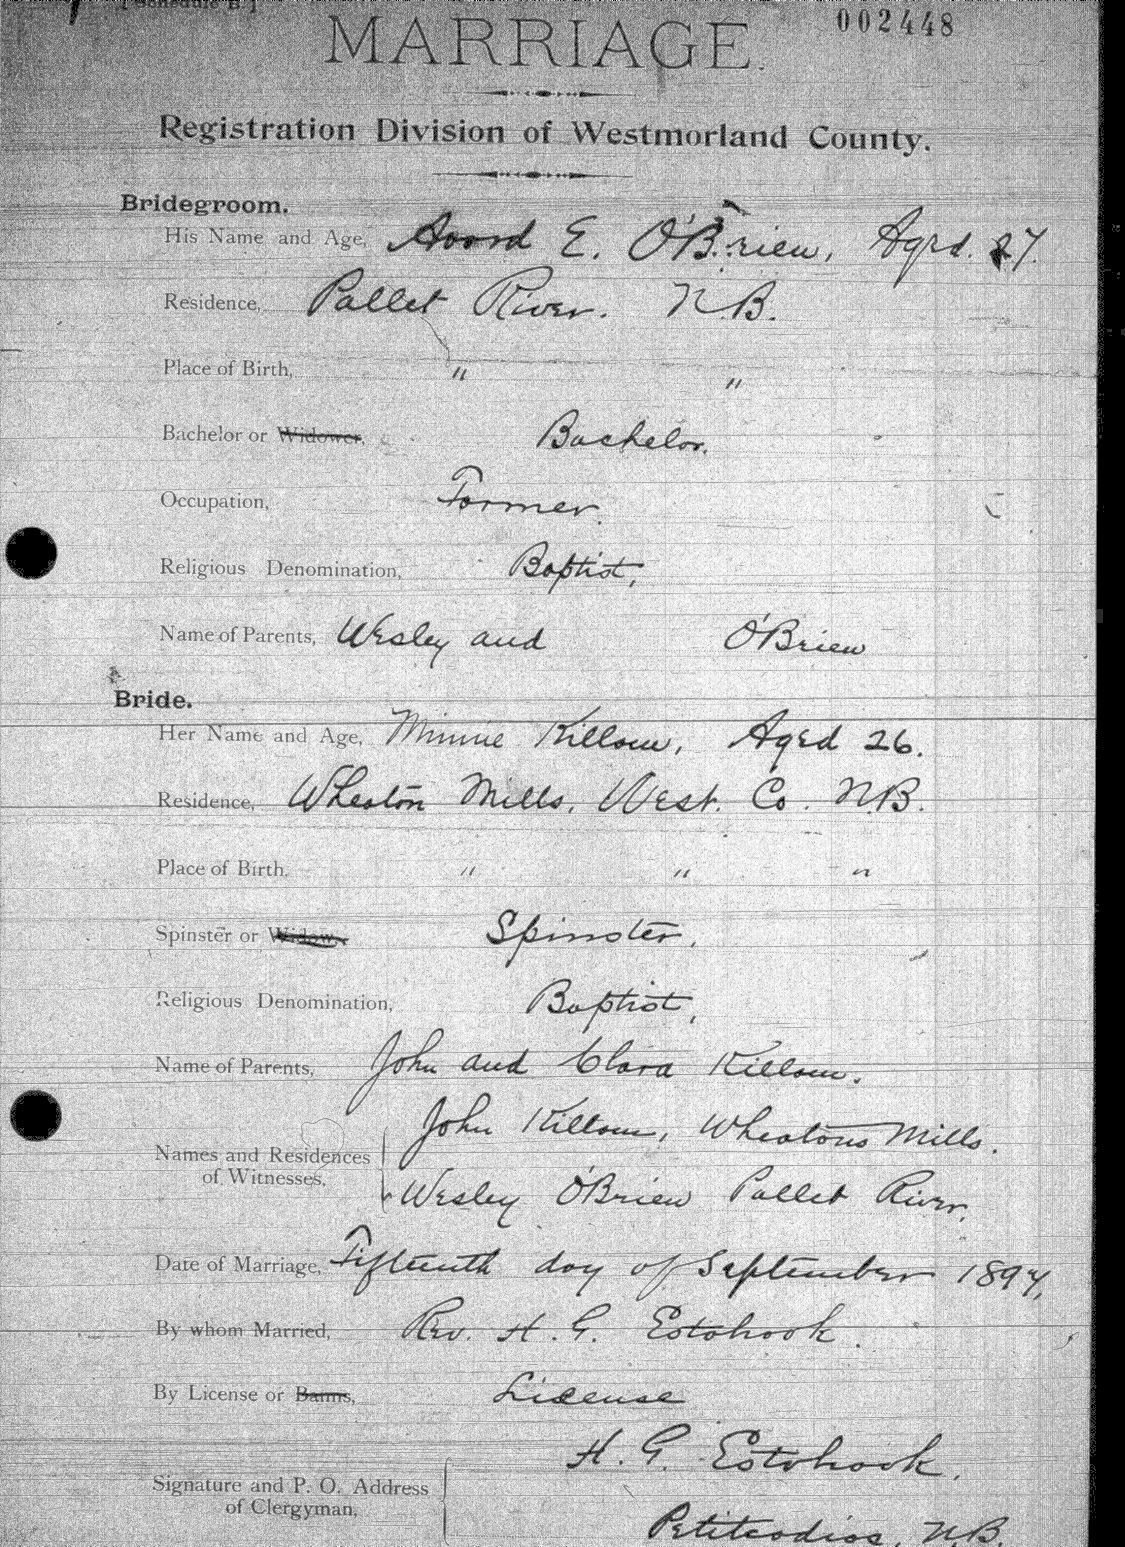 [Schedule B]
002448
MARRIAGE.
Registration Division of Westmorland County.
Bridegroom.
His Name and Age, Avord E. O'Brien, Aged. 27.
Residence, Pollet River. N.B.
Place of Birth, " "
Bachelor or Widower, Bachelor.
Occupation, Farmer.
Religious Denomination, Baptist,
Name of Parents, Wesley and O'Brien
Bride.
Her Name and Age, Minnie Killam, Aged 26.
Residence, Wheaton Mills, West. Co. N.B.
Place of Birth, " " "
Spinster or Widow, Spinster,
Religious Denomination, Baptist,
Name of Parents, John and Clara Killam.
John Killam, Wheatons Mills.
Names and Residences
of Witnesses,
Wesley O'Brien Pollet River,
Date of Marriage, Fifteenth day of September 1897,
By whom Married, Rev. H. G. Estabrook.
By License or Banns, License
H. G. Estabrook.
Signature and P. O. Address
of Clergyman,
Petitcodiac, N.B.